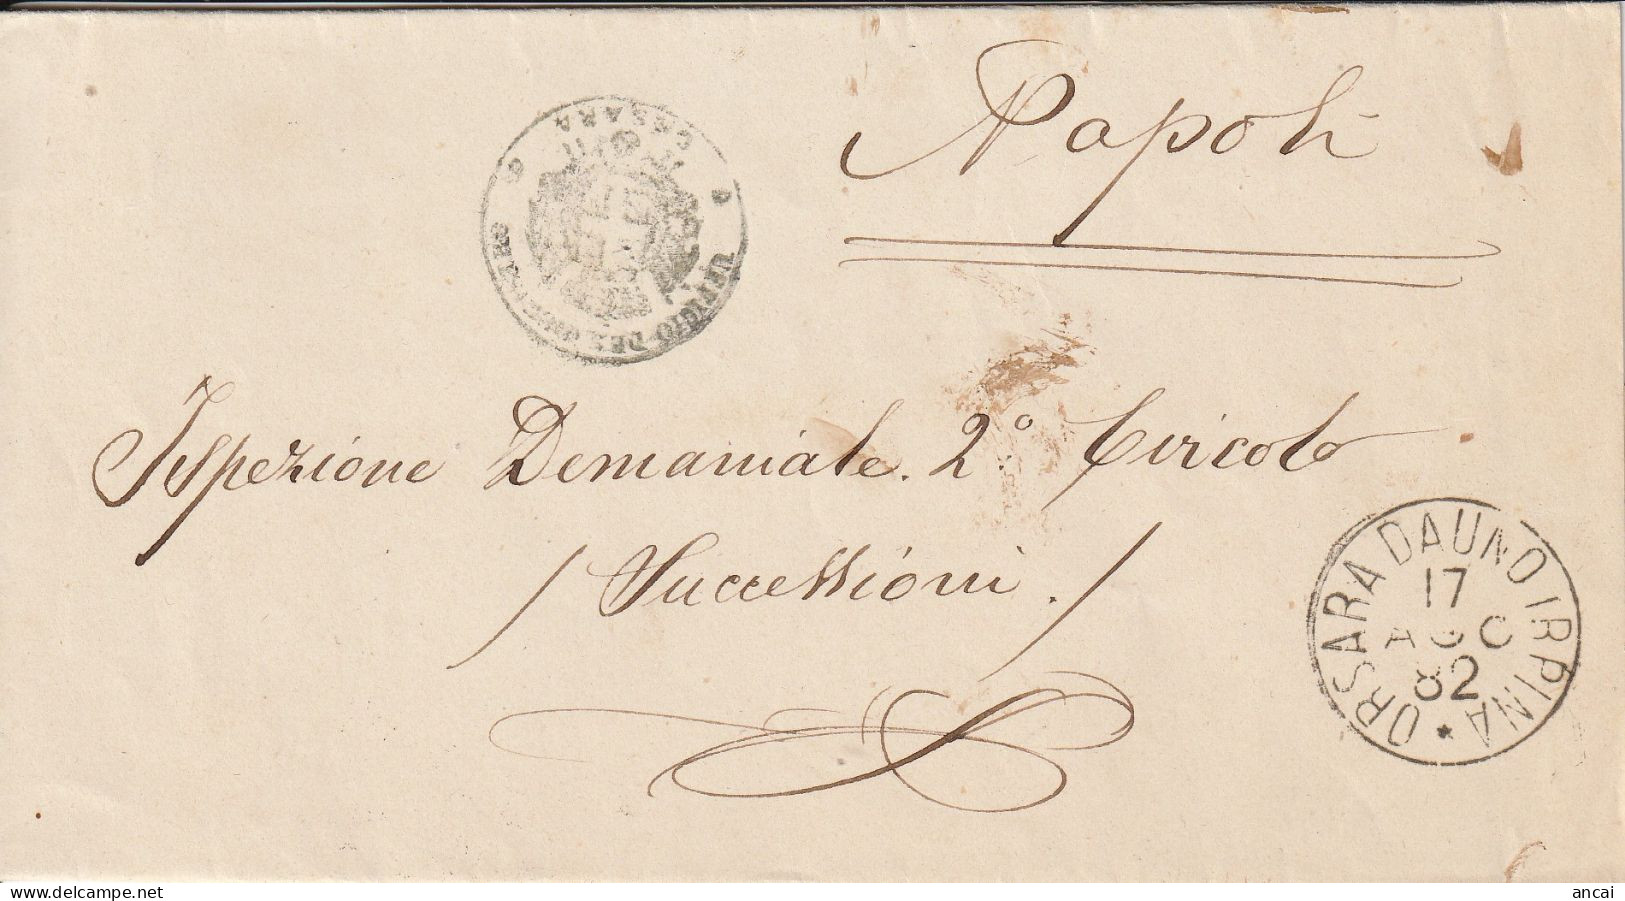 Napoli
ORSARA
UFFICIO DEL
Ispezione Demaniale 2° Circolo
/ Successioni. /
ORSARA DAUNO IRPINA *
17
AGO
82
www.delcampe.net
ancai